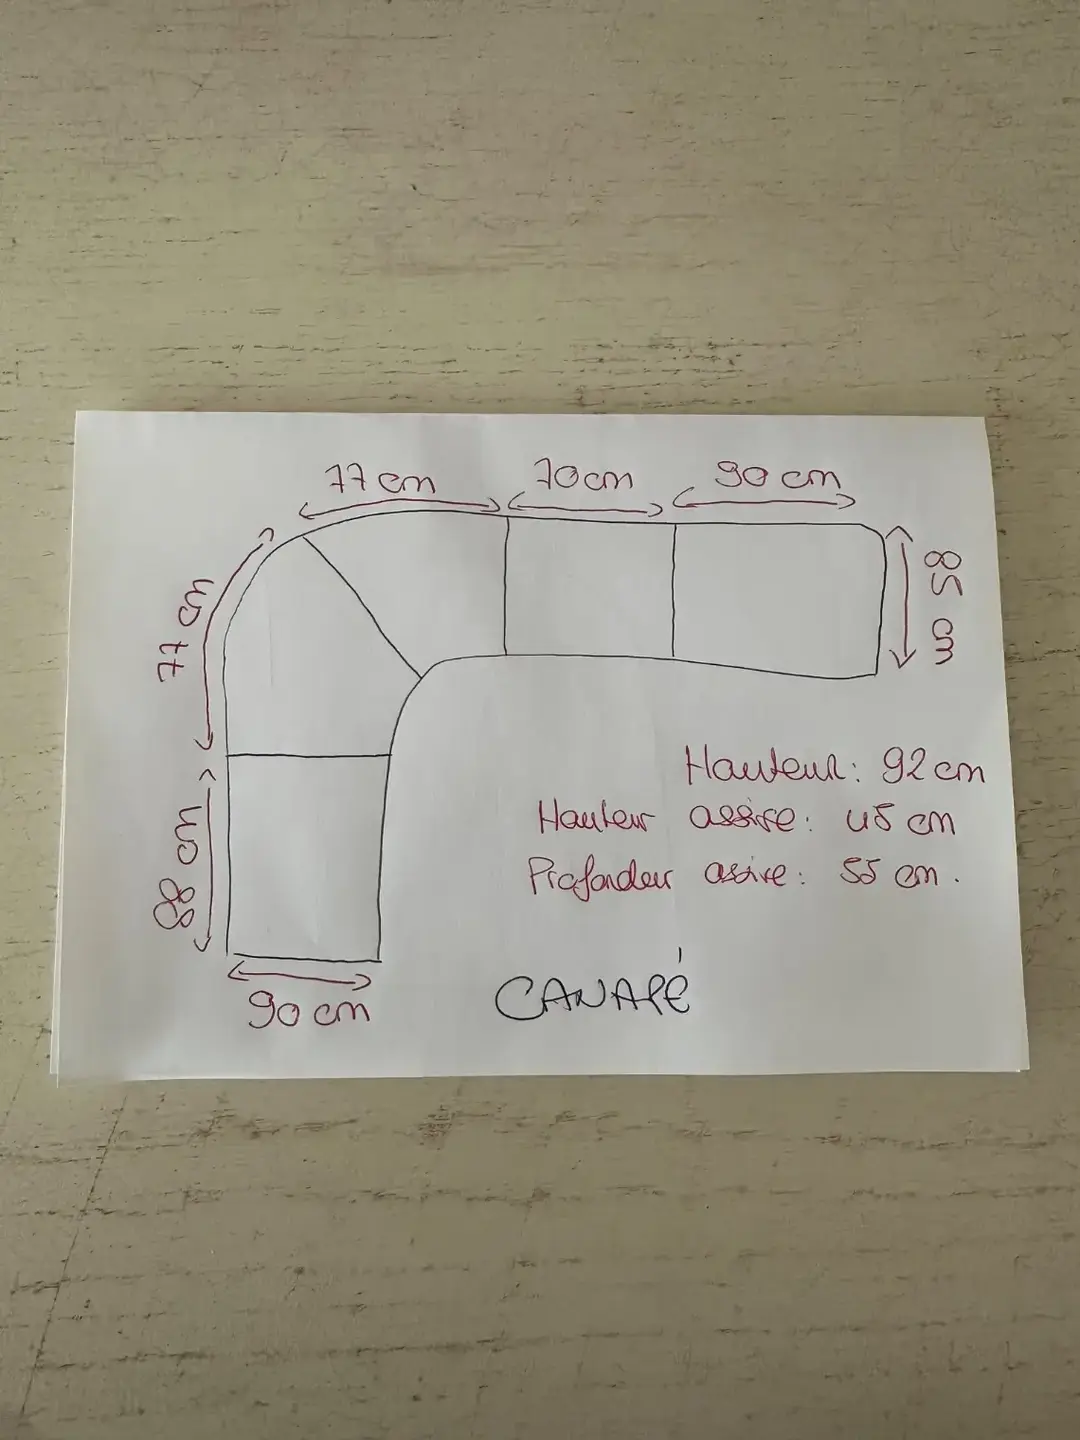 77 cm
70 cm
90 cm
85 cm
77 cm
88 cm
90 cm
Hauteur : 92 cm
Hauteur assise : 45 cm
Profondeur assise : 55 cm.
CANAPÉ